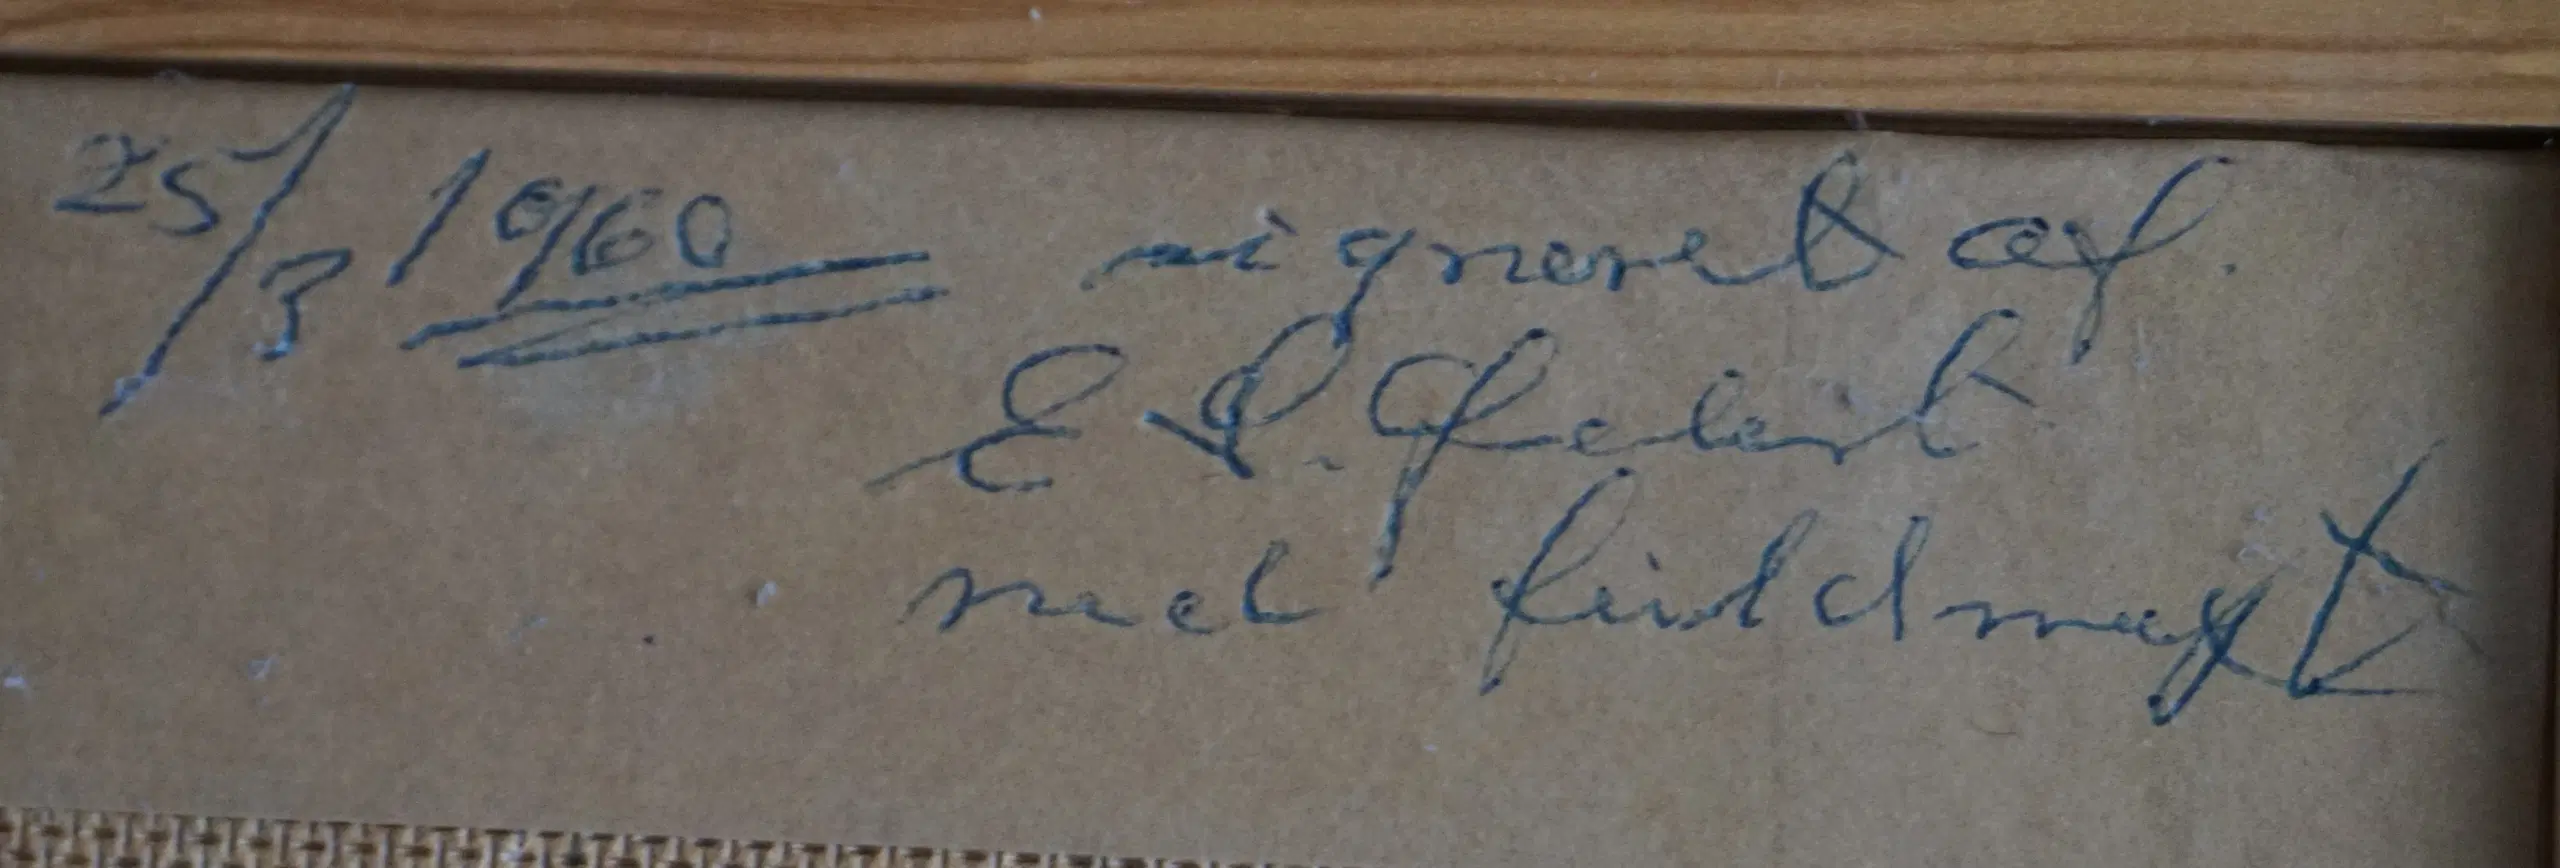 25/3 1960 signeret af.
E
med fuldmagt